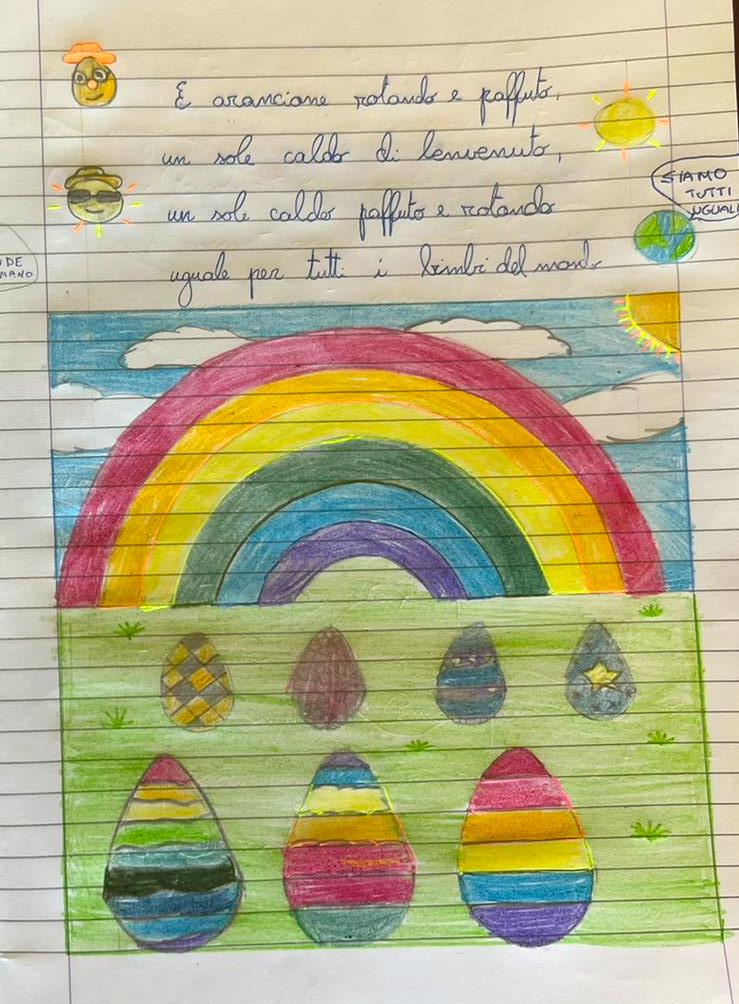 È arancione rotondo e paffuto,
un sole caldo di benvenuto,
un sole caldo paffuto e rotondo
uguale per tutti i bimbi del mondo
SIAMO
TUTTI
UGUALI